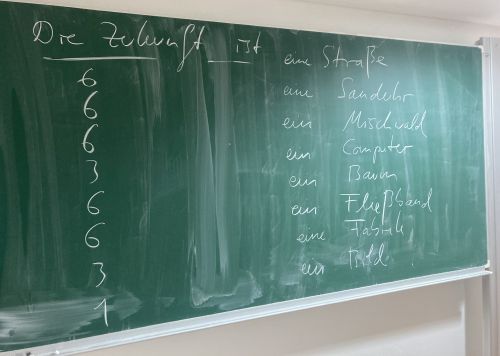 Die Zukunft ist eine Straße
6 eine Sanduhr
6 ein Mischwald
6 ein Computer
3 ein Baum
6 ein Fließband
6 eine Fabrik
3 ein
1